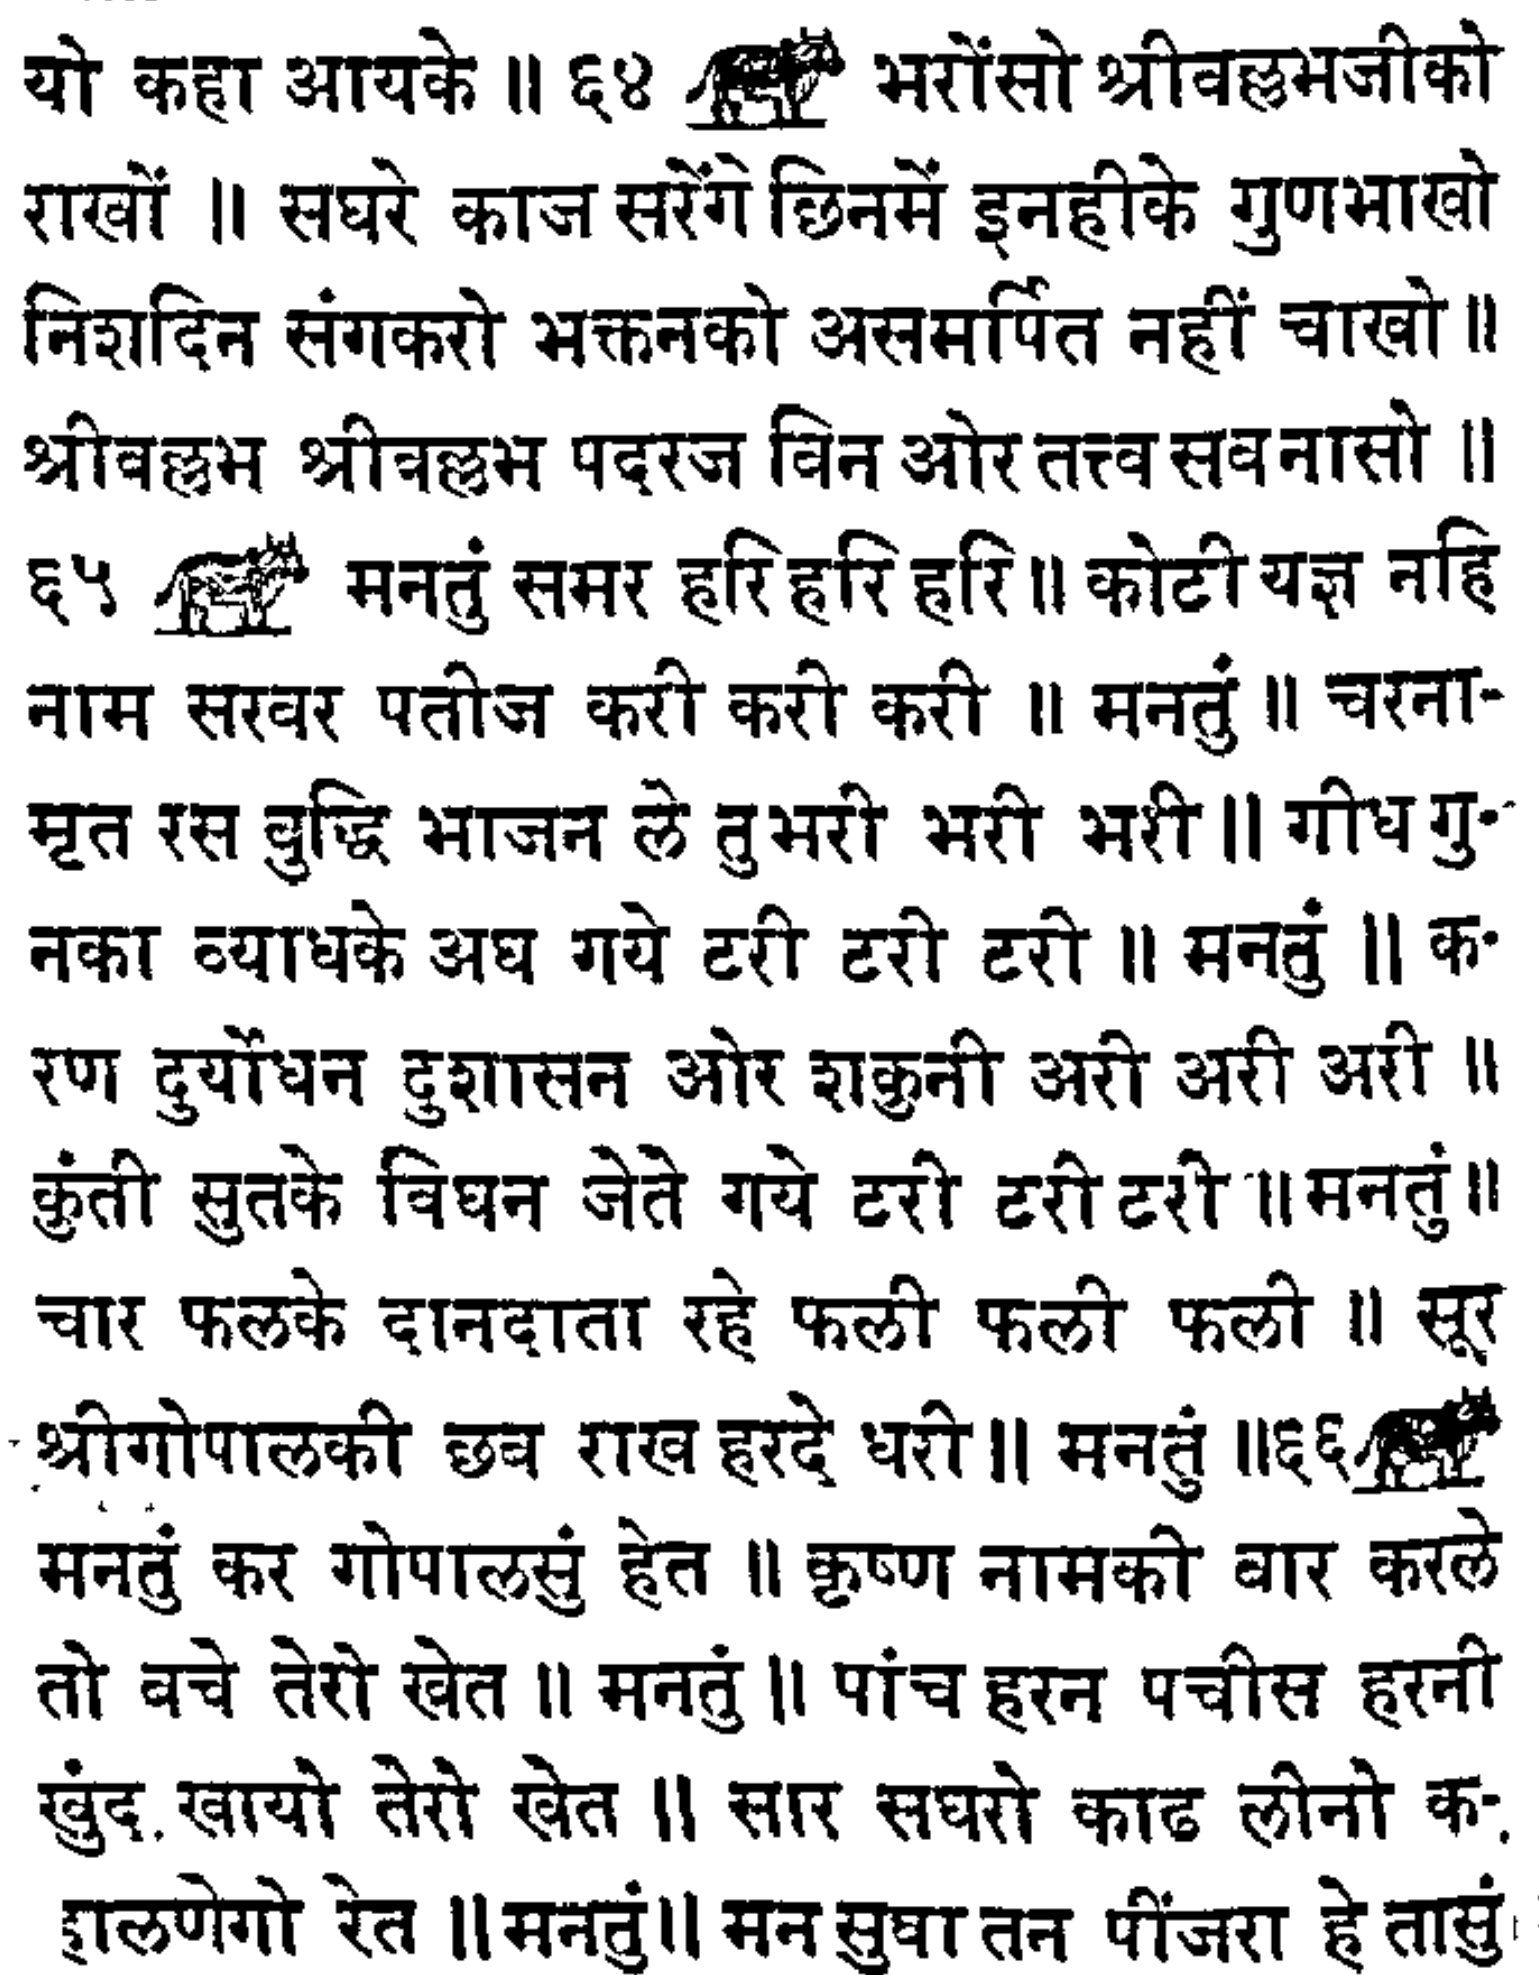 यो कहा आयके ॥ ६४ भरोंसो श्रीवल्लभजीको
राखों ॥ सघरे काज सरेंगे छिनमें इनहीके गुणभाखो
निशदिन संगकरो भक्तनको असमर्पित नहीं चाखो ॥
श्रीवल्लभ श्रीवल्लभ पदरज विन ओर तत्त्व सव नासो ॥
६५ मनतुं समर हरि हरि हरि ॥ कोटी यज्ञ नहि
नाम सरवर पतीज करी करी करी ॥ मनतुं ॥ चरना-
मृत रस वुद्धि भाजन ले तुभरी भरी भरी ॥ गीध गु-
नका व्याधके अघ गये टरी टरी टरी ॥ मनतुं ॥ क-
रण दुर्योधन दुशासन ओर शकुनी अरी अरी अरी ॥
कुंती सुतके विघन जेते गये टरी टरी टरी ॥ मनतुं ॥
चार फलके दानदाता रहे फली फली फली ॥ सूर
श्रीगोपालकी छव राख हरदे धरी ॥ मनतुं ॥ ६६
मनतुं कर गोपालसुं हेत ॥ कृष्ण नामकी वार करले
तो वचे तेरो खेत ॥ मनतुं ॥ पांच हरन पचीस हरनी
खुंद खायो तेरो खेत ॥ सार सघरो काढ लीनो क-
लणेगो रेत ॥ मनतुं ॥ मन सुघा तन पींजरा हे तासुं